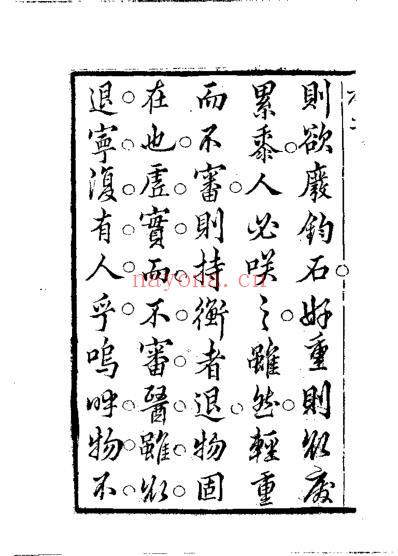 則欲廢鈞石好重則欲廢
累黍人必咲之雖然輕重
而不審則持衡者退物固
在也虛實而不審醫雖欲
退寧復有人乎嗚呼物不
nayona.cn